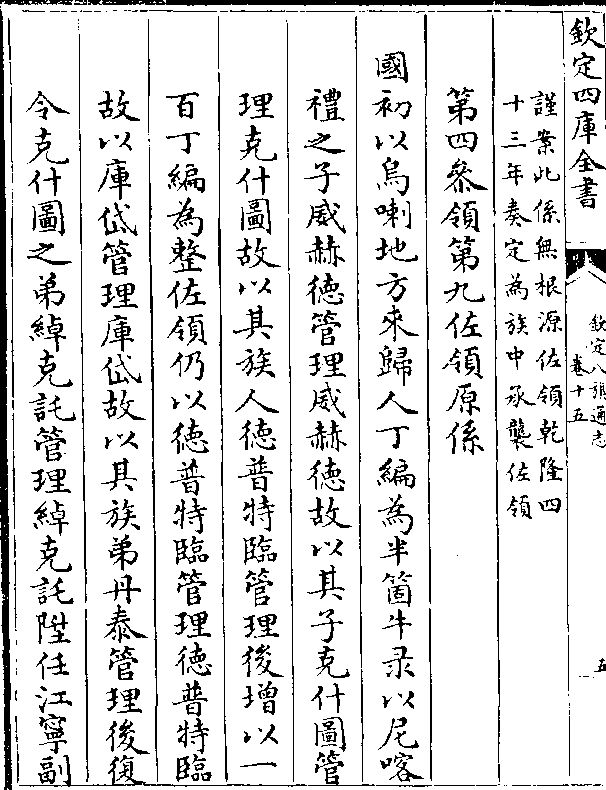 欽定四庫全書
欽定八旗通志
卷十五
五
謹案此係無根源佐領乾隆四
十三年奏定為族中承襲佐領
第四叅領第九佐領原係
國初以烏喇地方來歸人丁編為半箇牛录以尼喀
禮之子威赫徳管理威赫徳故以其子克什圖管
理克什圖故以其族人徳普特臨管理後增以一
百丁編為整佐領仍以徳普特臨管理徳普特臨
故以庫岱管理庫岱故以其族弟丹泰管理後復
令克什圖之弟綽克託管理綽克託陞任江寧副